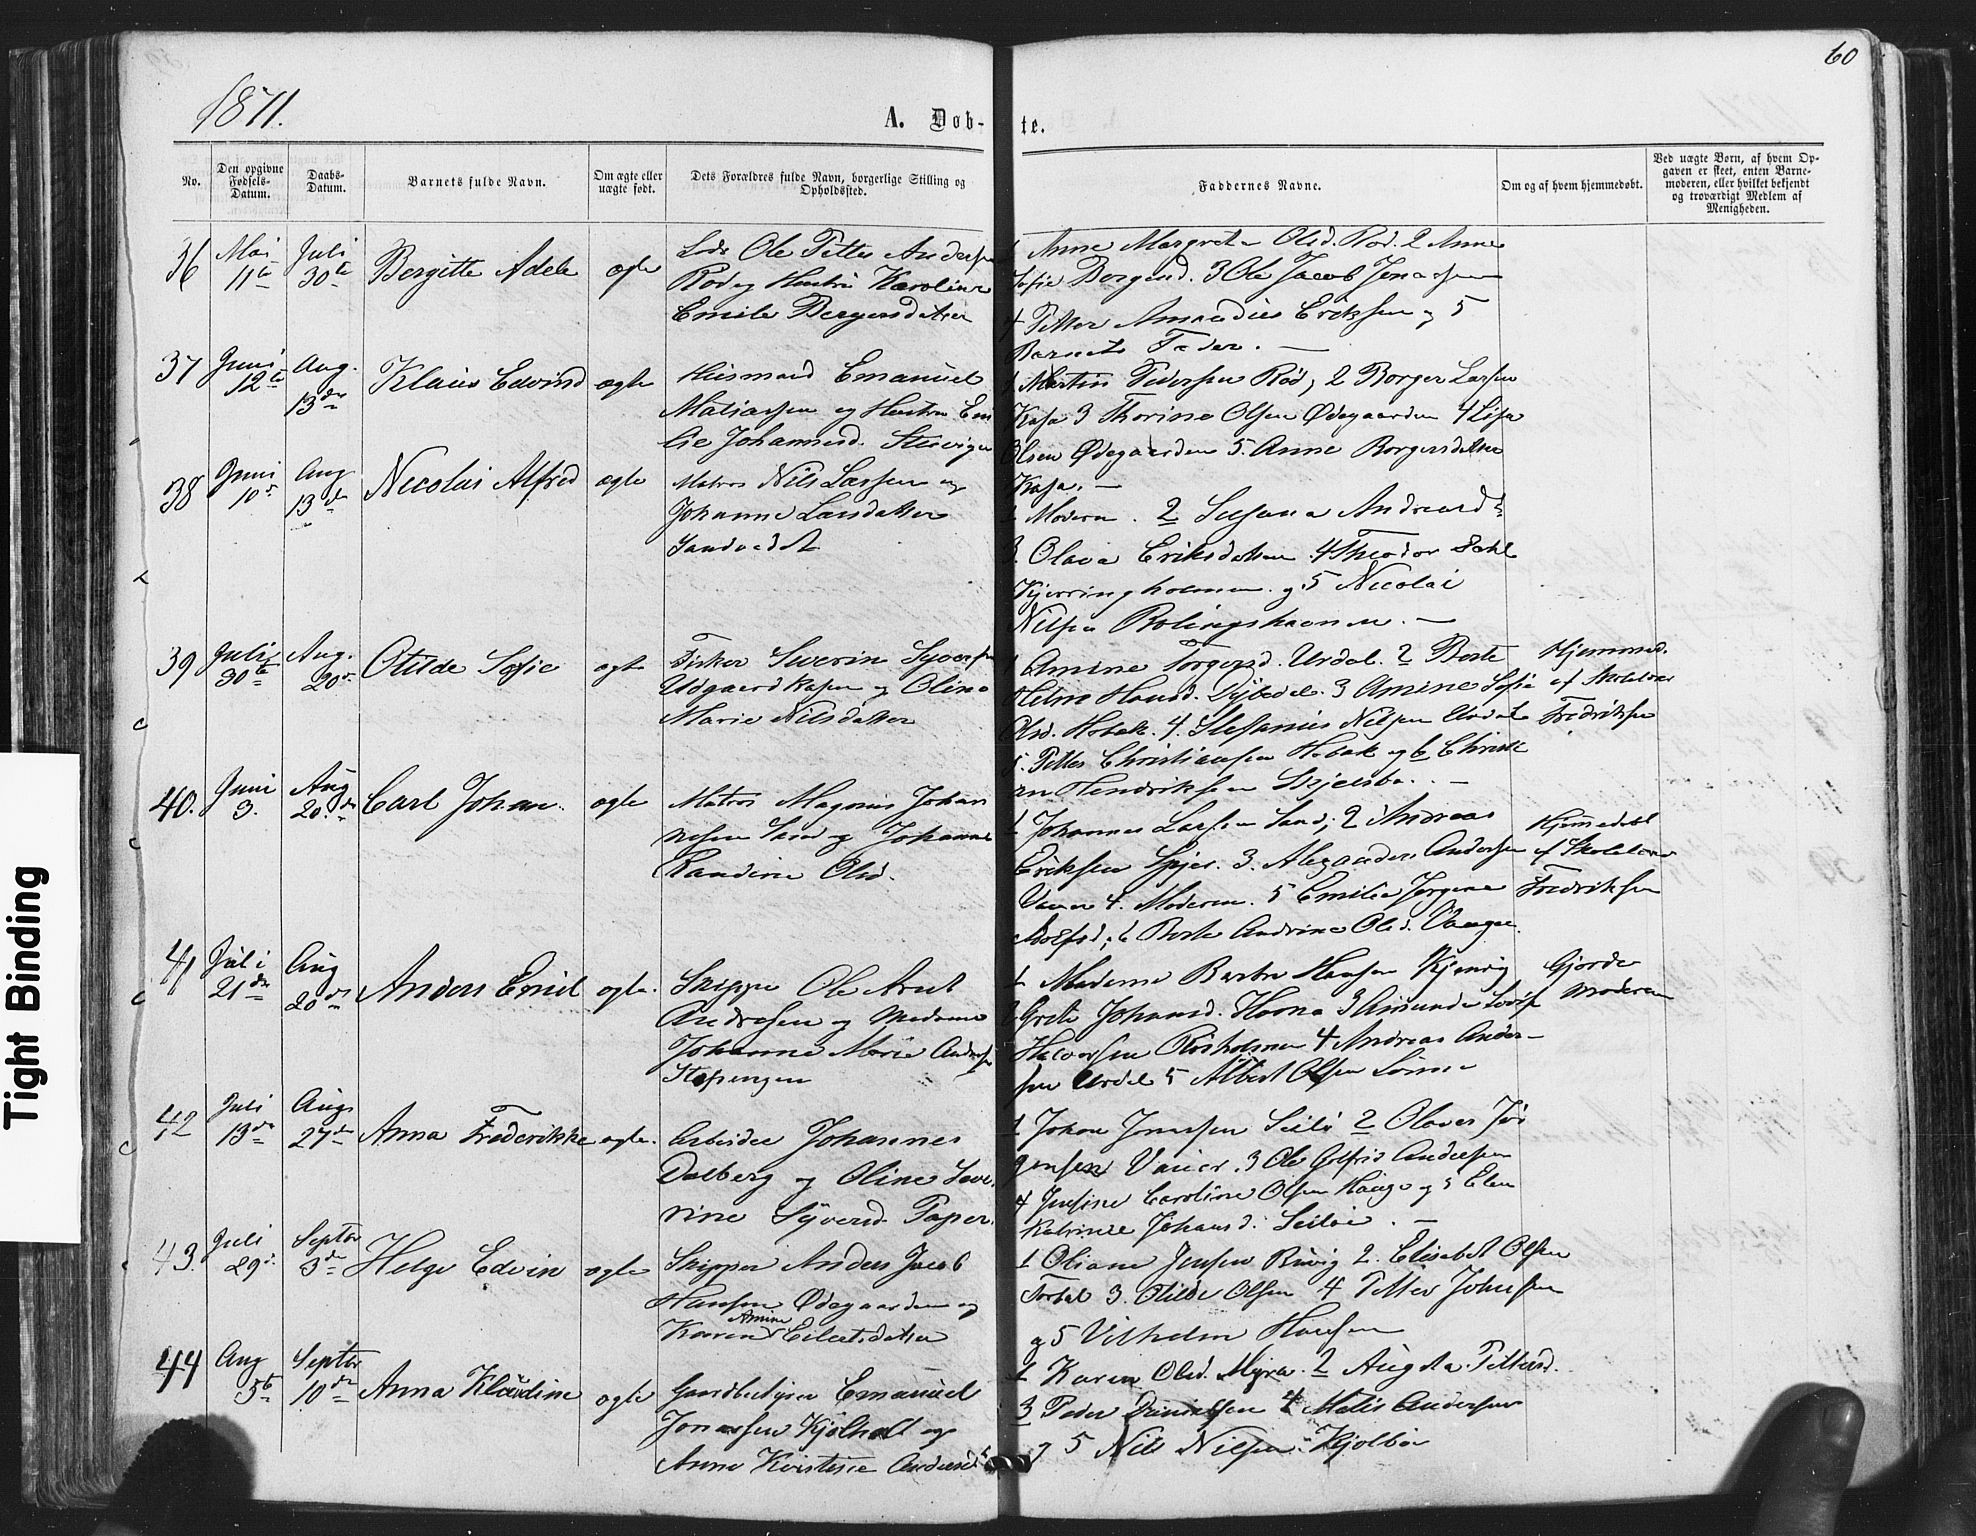 60
1871.
A. Døb-
te.
No.
Den opgivne Fødsels-Datum.
Daabs-Datum.
Barnets fulde Navn.
Om ægte eller uægte født.
Dets Forældres fulde Navn, borgerlige Stilling og Opholdssted.
Faddernes Navne.
Om og af hvem hjemmedøbt.
Ved uægte Børn, af hvem Op-
gaven er skeet, enten Barne-
moderen, eller hvilket bekjendt
og troværdigt Medlem af
Menigheden.
36 Mai 11te Juli 30te Bergitte Adele ægte
Ole Petter Andersen
Rød og Hustru Karoline
Emilie Borgersdatter
1 Anne Margrete Olsd. Rød. 2 Anne
Sofie Borgersd. 3 Ole Jacob Jonassen
4 Petter Amandius Eriksen og 5
Barnets Fader. —
37 Juni 12te Aug. 13de Klaus Edvind ægte
Husmand Emanuel
Matiassen og Hustru Emi
lie Johannesd. Stuvigen
1 Martin Pedersen Rød, 2 Borger Larsen
Kasa 3 Thorine Olsen Ødegaarden 4 Lisa
Olsen Ødegaarden 5. Anne Borgersdatter
Kasa. —
38 Juni 10de Aug 13de Nicolai Alfred ægte
Matros Nils Larsen og
Johanne Larsdatter
Sandvedet
1 Modern. 2 Susanna Andreasdt
3. Olava Eriksdatter 4 Theodor Dahl
Kjerringholmen og 5 Nicolai
Nilsen Rolingshavnen. —
39 Juli 30te Aug. 20de Otilde Sofie ægte
Fisker Severin Syversen
Udgaardkasen og Oline
Marie Nilsdatter
1 Amine Torgersd. Urdal. 2 Berte
Helene Hansd. Dybedal. 3 Amine Sofie
Olsd. Hobæk. 4. Stefanius Nilsen Urdal
5. Petter Christiansen Hobæk og 6 Christi
an Hendriksen Skjelsbo. —
Hjemmed.
af Skolelærer
Fredriksen
40. Juni 3. Aug 20de Carl Johan. ægte
Matros Magnus Johan
nesen Sand og Johanne
Randine Olsd.
1 Johannes Larsen Sand, 2 Andreas
Eriksen Spjær. 3. Alexander Andersen
Vauer 4. Moderen. 5 Emilie Jørgine
Adolfsd; 6 Berte Andrine Olsd. Vauger
Hjemmedøbt
af Skolelærer
Fredriksen
41 Juli 21de Aug 20de Anders Emil ægte.
Skipper Ole Arnt
Andresen og Madame
Johanne Marie Andersen
Stopengen
1 Madame Berthe Hansen Kjenvig
2 Grete Johansd. Horna 3 Amunda Lovise
Halvorsen Risholmen 4 Andreas Ander-
sen Urdal 5 Albert Olsen
Gjorde
Moderen
42 Juli 13de Aug 27de Anna Frederikke ægte.
Arbeider Johannes
Dalberg og Oline Seve
rine Syversd. Paper.
1 Johan Jonassen Seilø 2 Olaves Jør
gensen Vauer. 3 Ole Andersen
4 Josine Caroline Olsen Hauge og 5 Elen
Katrine Johansd. Seiløe. —
43. Juli 29de Septbr 3de Helge Edvin ægte
Skipper Anders Jacob
Hansen Ødegaarden og
Karen Amine Eilertsdatter
1 Oliane Jensen Røvig 2. Elisabet Olsen
Torbal 3. Otilde Olsen 4 Petter Johnsen
og 5 Vilhelm Hansen
44 Aug 5te Septbr 10de Anna Klaudine ægte
Gaardbestyrer Emanuel
Jonassen Kjølholt og
Anne Kristine Andersdt
1 Karen Olsd. Myra. 2 Augsta Pettersd.
3 Peder Danielsen 4 Matis Andersen
og 5 Nils Nilsen Kjølbo
Tight Binding